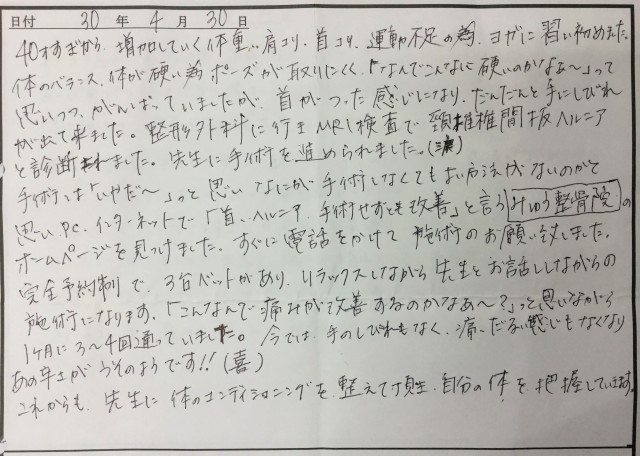 日付 30 年 4 月 30 日
40才すぎから、増加していく体重…肩コリ、首コリ、運動不足の為、ヨガに習い初めた。
体のバランス、体が硬い為ポーズが取りにくく、「なんでこんなに硬いのかなぁ〜」って
思いつつ、がんばっていましたが、首がつった感じになり、だんだんと手にしびれ
が出て来ました。整形外科に行きMRI検査で頸椎椎間板ヘルニア
と診断されました。先生に手術を進められました。(涙)
手術は「いやだ〜」って思い なにか手術しなくてもよい方法がないのかと
思い、PC.インターネットで「首、ヘルニア、手術せずとも改善」と言うみゅう整骨院の
ホームページを見つけました。すぐに電話をかけて施術のお願い致しました。
完全予約制で、3台ベットがあり、リラックスしながら先生とお話ししながらの
施術になります。「こんなんで痛みが改善するのかなあ〜?」っと思いながら
1ヶ月に3〜4回通っていました。今では、手のしびれもなく、痛、だるい感じもなくなり
あの辛さがうそのようです!!(喜)
これからも、先生に体のコンディショニングを整えて頂き、自分の体を把握していきます。